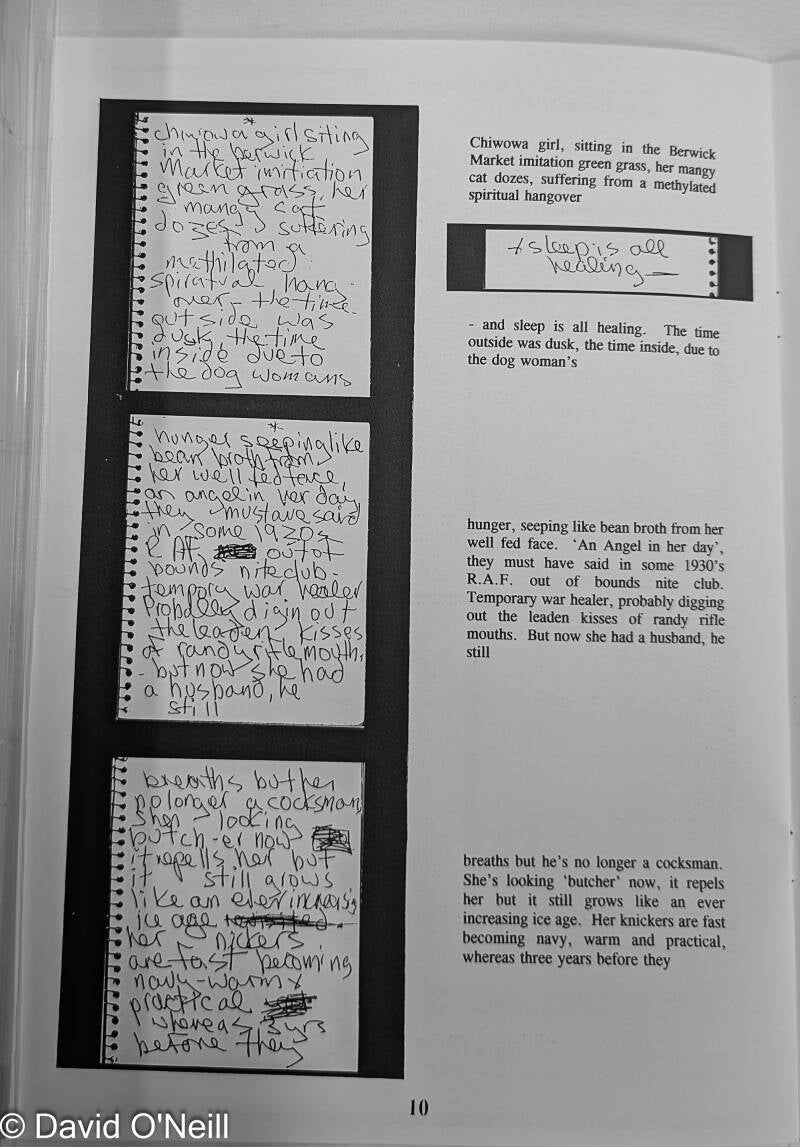 *
chiwowa girl siting
in the berwick
Market imitiation
green grass, her
mangy cat
dozes, suffering
from a
mathilated
spiratual hang-
over - the time
outside was
dusk, the time
inside due to
the dog womans
Chiwowa girl, sitting in the Berwick
Market imitation green grass, her mangy
cat dozes, suffering from a methylated
spiritual hangover
+ sleep is all
healing —
- and sleep is all healing. The time
outside was dusk, the time inside, due to
the dog woman's
*
hunger seeping like
bean broth from
her well fed face,
an angel in her day
they must ave said
in some 1930s
R AF out of
bounds nite club -
tempory war healer
Probally digin out
the leaden kisses
of randy rifle mouths.
- but now she had
a husband, he
still
hunger, seeping like bean broth from her
well fed face. ‘An Angel in her day’,
they must have said in some 1930’s
R.A.F. out of bounds nite club.
Temporary war healer, probably digging
out the leaden kisses of randy rifle
mouths. But now she had a husband, he
still
breaths but her
no longer a cocksman,
shes looking
butch-er now
it repells her but
it still grows
like an ever increasing
ice age
her nickers
are fast becoming
navy - warm +
practical
whereas 3 yrs
before they
breaths but he’s no longer a cocksman.
She’s looking ‘butcher’ now, it repels
her but it still grows like an ever
increasing ice age. Her knickers are fast
becoming navy, warm and practical,
whereas three years before they
10
© David O'Neill